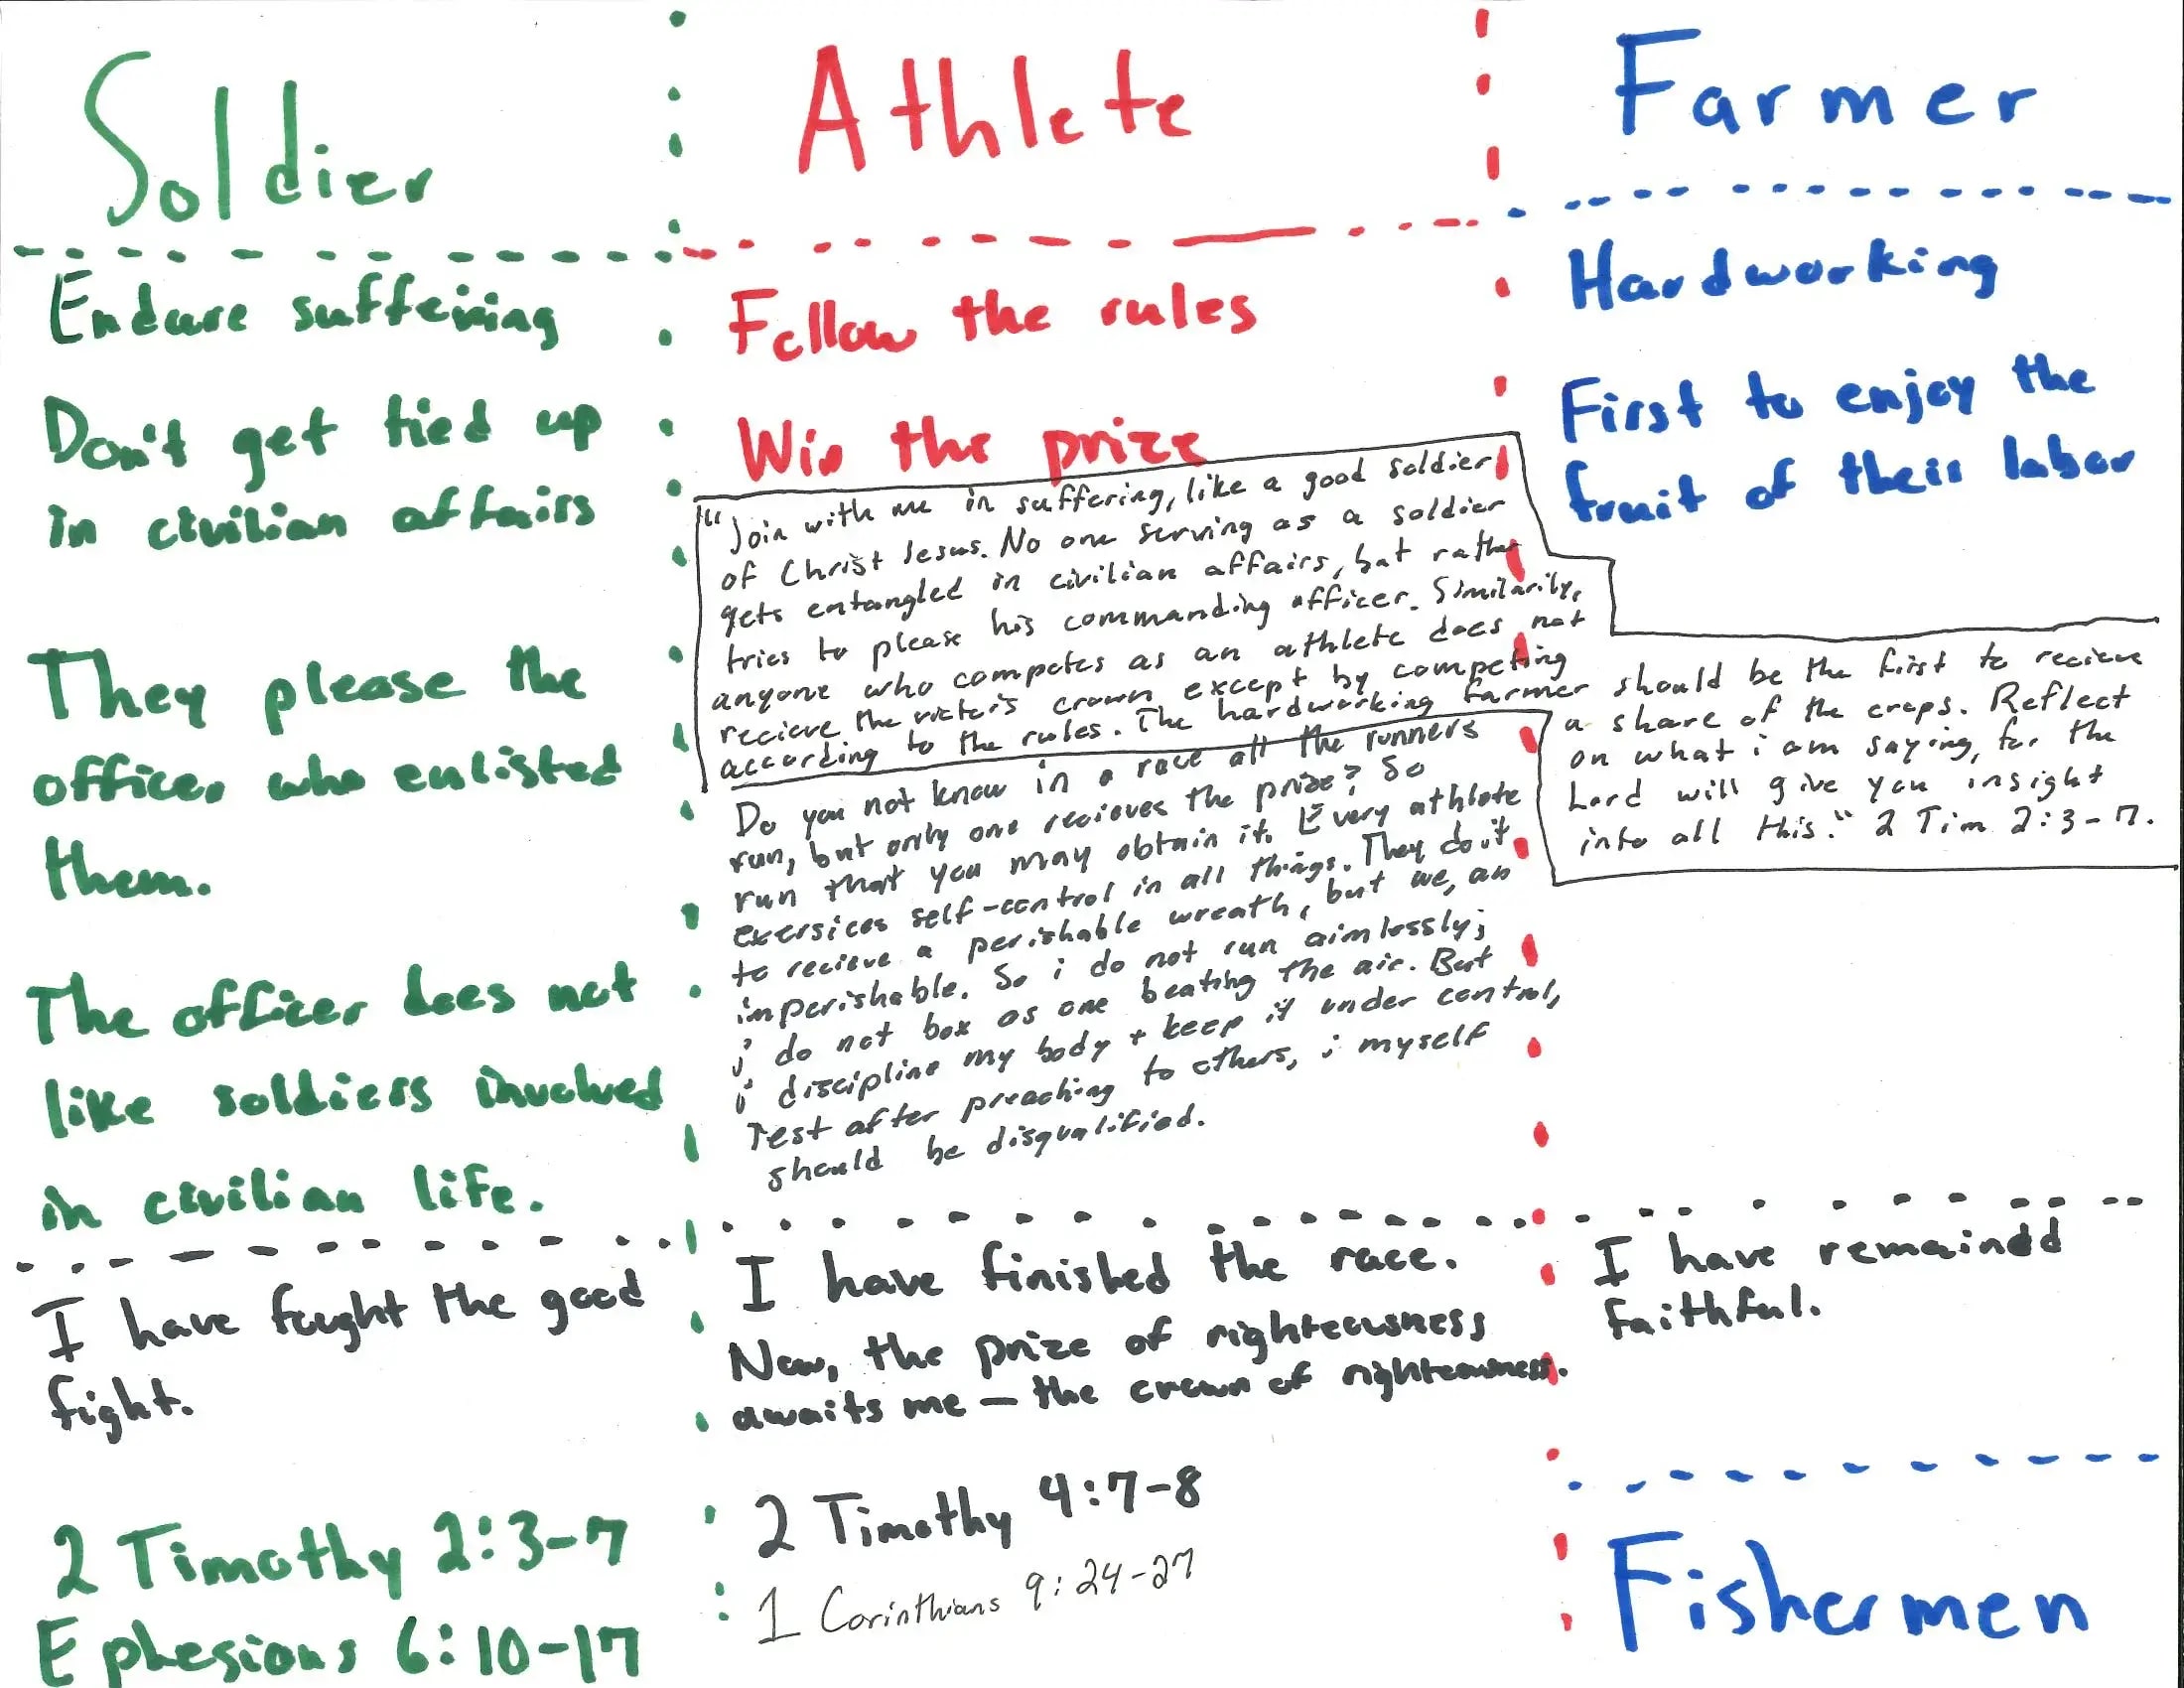 Soldier
Endure suffering
Don't get tied up
in civilian affairs
They please the
officer who enlisted
them.
The officer does not
like soldiers involved
in civilian life.
I have fought the good
fight.
2 Timothy 2:3-7
Ephesians 6:10-17
Athlete
Follow the rules
Win the prize
"Join with me in suffering, like a good soldier
of Christ Jesus. No one serving as a soldier
gets entangled in civilian affairs, but rather
tries to please his commanding officer. Similarily,
anyone who competes as an athlete does not
recieve the victor's crown except by competing
according to the rules. The hardworking farmer should be the first to recieve
a share of the crops. Reflect
on what i am saying, for the
Lord will give you insight
into all this." 2 Tim 2:3-7.
Do you not know in a race all the runners
run, but only one recieves the prize? So
run that you may obtain it. Every athlete
exersices self-control in all things. They do it
to recieve a perishable wreath, but we, an
imperishable. So i do not run aimlessly;
i do not box as one beating the air. But
i discipline my body + keep it under control,
lest after preaching to others, i myself
should be disqualified.
I have finished the race.
Now, the prize of righteousness
awaits me – the crown of righteousness.
2 Timothy 4:7-8
1 Corinthians 9:24-27
Farmer
Hardworking
First to enjoy the
fruit of their labor
I have remaindd
faithful.
Fishermen